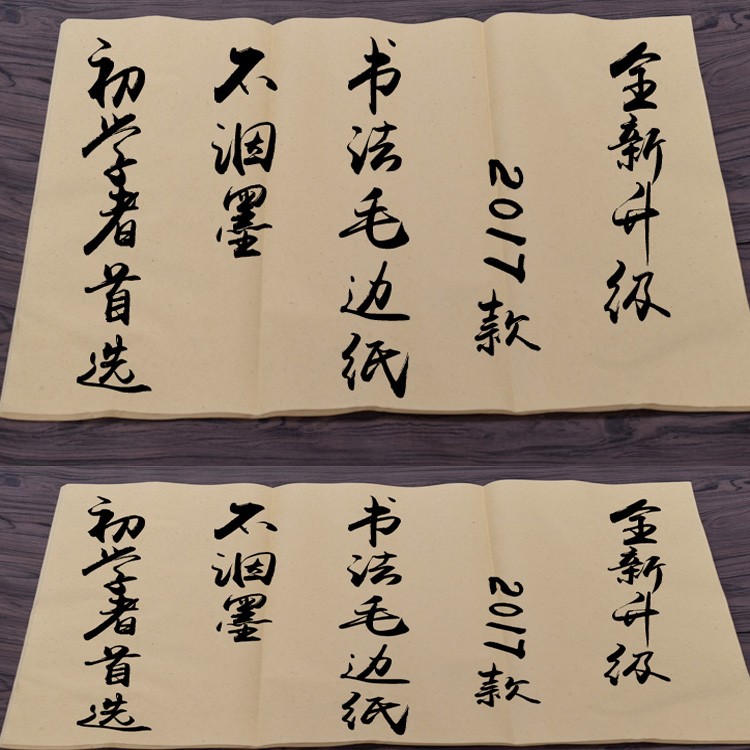 全新升级
2017款
书法毛边纸
不洇墨
初学者首选
全新升级
2017款
书法毛边纸
不洇墨
初学者首选